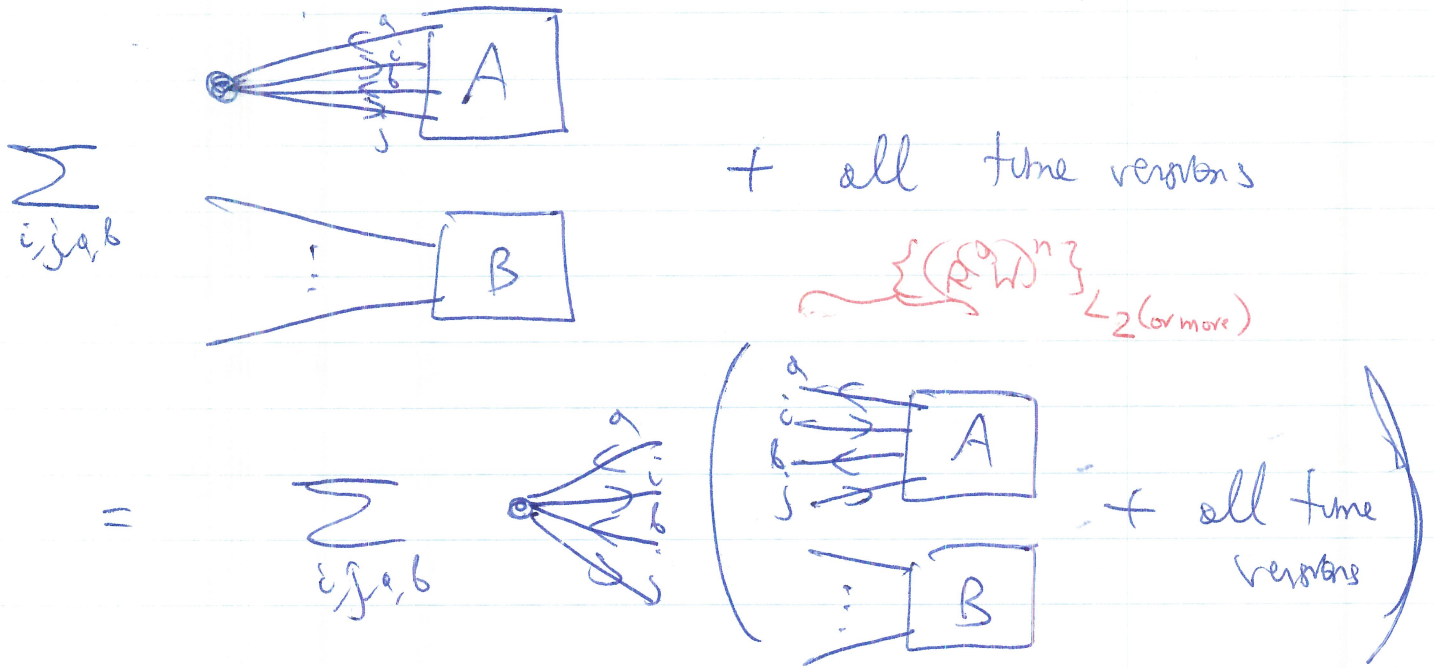 a
i
b
j
A
Σ
i,j,a,b
+ all time versions
B
⋮
{(R⁰W)ⁿ}L2(or more)
= Σ
i,j,a,b
a
i
b
j
(
a
i
b
j
A
+ all time
versions
⋮
B
)